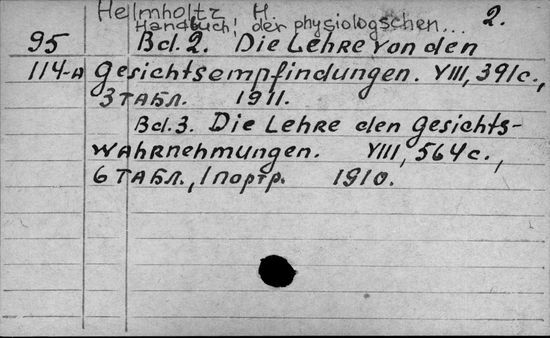 Helmholtz H. 2.
Handbuch! der physiologschen...
95 Bd. 2. Die Lehre von den
114-A Gesichtsempfindungen. VIII, 391с.,
3 табл. 1911.
Bd. 3. Die Lehre den Gesichts-
wahrnehmungen. VIII, 564 с.,
6 табл., 1 портр. 1910.